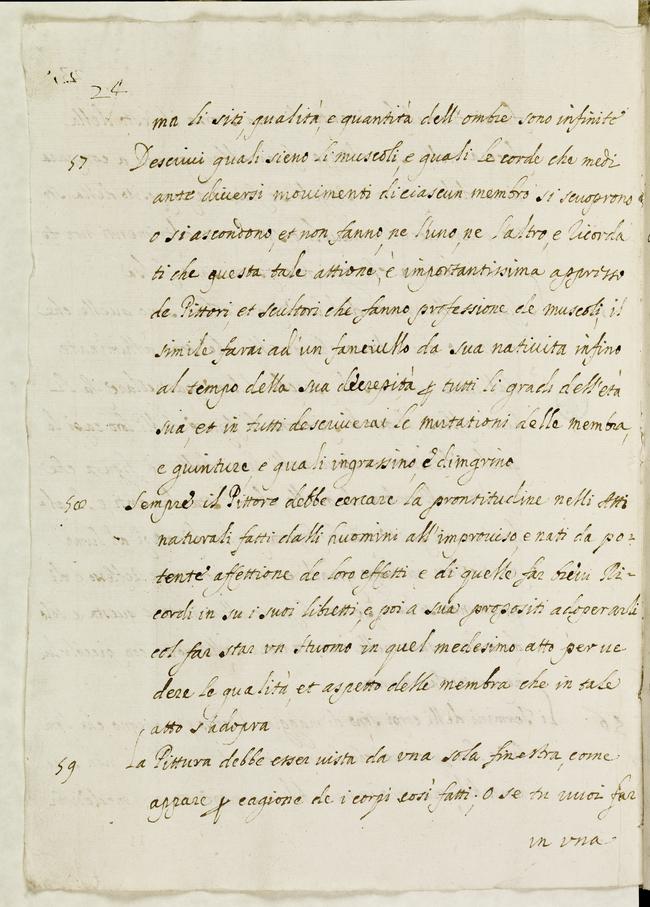 24
ma li siti, qualità, e quantità dell'ombre sono infinite
57 Descrivi quali sieno li muscoli, e quali le corde che medi
ante diversi movimenti di ciascun membro si scuoprono
o si ascondono, et non fanno, ne l'uno, ne l'altro, e ricorda
ti che questa tale attione, è importantissima appresso
de Pittori, et scultori che fanno professione de muscoli, il
simile farai ad'un fanciullo da sua natività infino
al tempo della sua decrepità ꝑ tutti li gradi dell'età
sua, et in tutti descriverai le mutationi delle membra,
e giunture, e quali ingrassino, e dimgrino
58 Sempre il Pittore debbe cercare la prontitudine nelli Atti
naturali fatti dalli huomini all'improviso, e nati da po-
tente affettione de loro effetti e di quelle far brevi Ri-
cordi in su i suoi libretti, e poi a suà propositi adoperarli
col far star vn Huomo in quel medesimo atto per ve
dere le qualità, et aspetto delle membra che in tale
atto s'adopra
59 La Pittura debbe esser vista da vna sola finestra, come
appare ꝑ cagione de i corpi così fatti; O se tu vuoi far
in vna